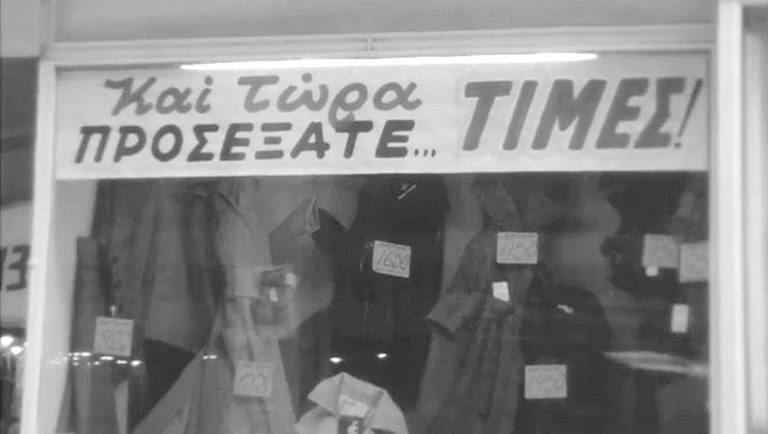 Καὶ τώρα
ΠΡΟΣΕΞΑΤΕ... ΤΙΜΕΣ!
1600
1150